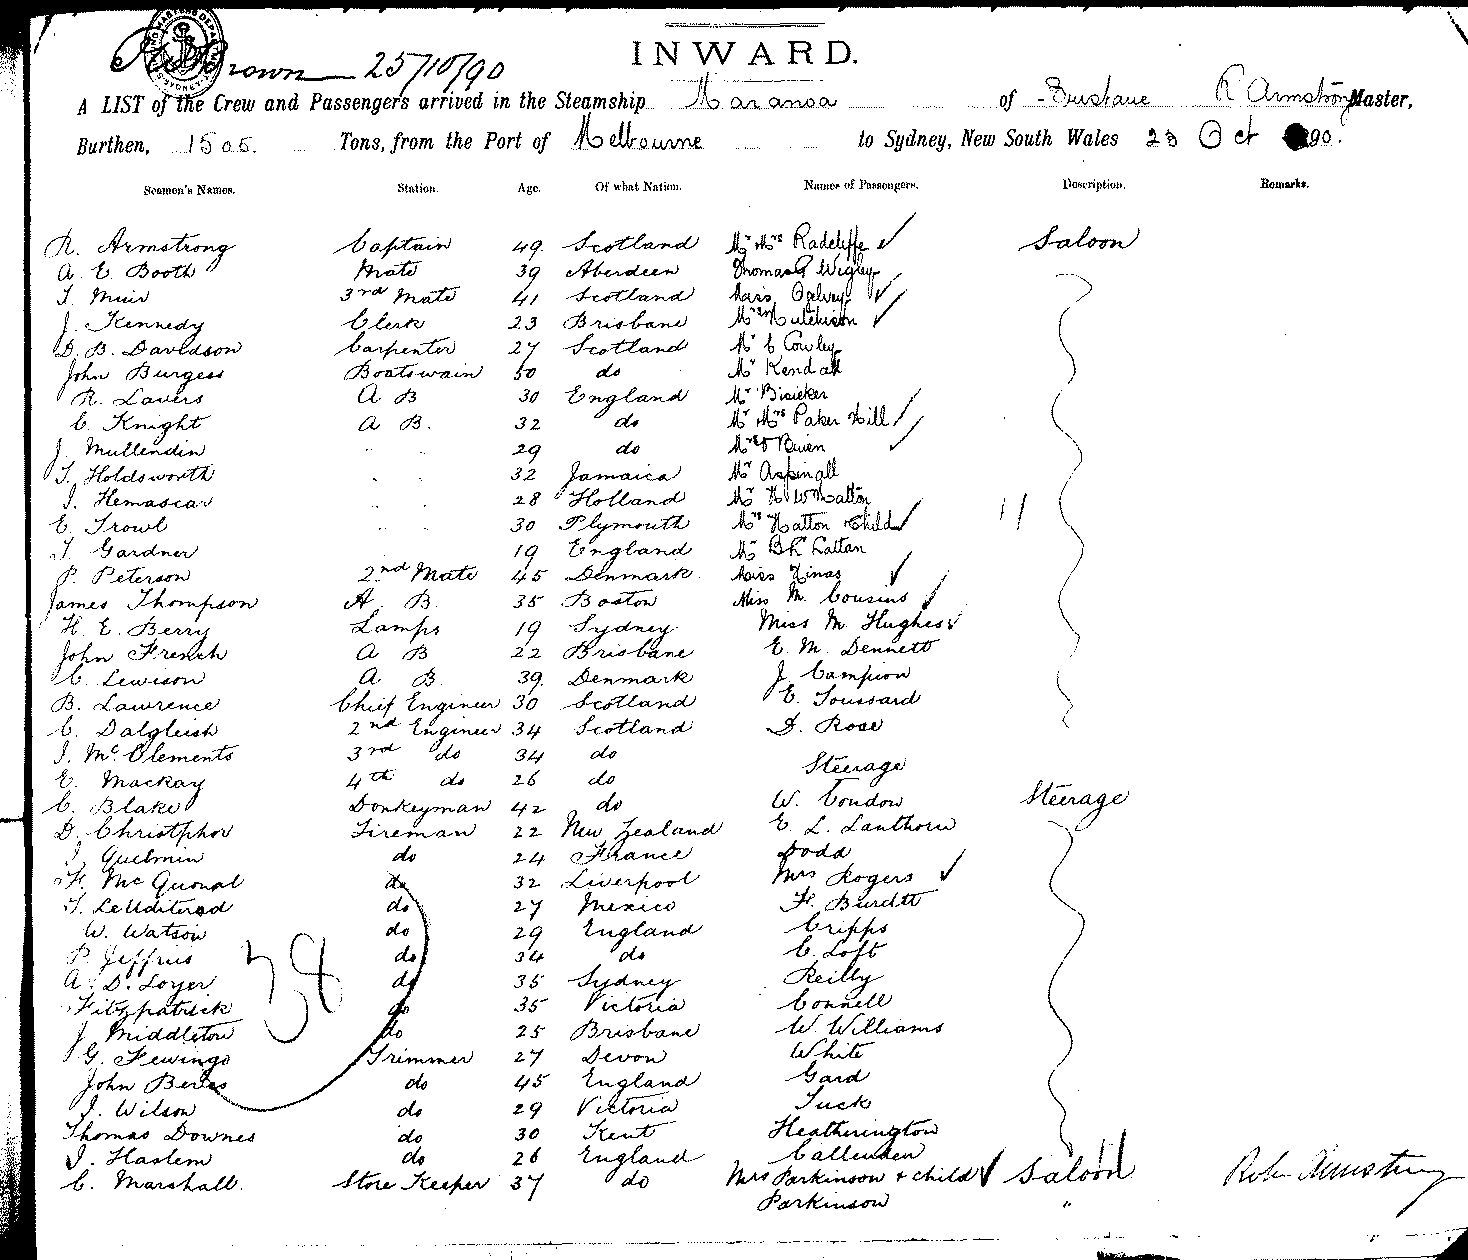 Brown 25/10/90
INWARD.
A LIST of the Crew and Passengers arrived in the Steamship Maranoa of Brisbane R Armstrong Master,
Burthen, 1505. Tons, from the Port of Melbourne to Sydney, New South Wales 23 Oct 90.
Seamen's Names. Station. Age. Of what Nation. Names of Passengers. Description. Remarks.
R. Armstrong Captain 49. Scotland Mr Mrs Radcliffe ✓ Saloon
A. E. Booth Mate 39 Aberdeen Thomas Wigley
T. Muir 3rd Mate 41 Scotland Miss Ogilvey ✓
J. Kennedy Clerk 23 Brisbane Mrs Hutchison ✓
D. B. Davidson Carpenter 27 Scotland Mr C Cowley
John Burgess Boatswain 50 do Mr Kendall
R. Lavers A B 30 England Mr
C. Knight A B. 32 do Mr Mrs Paker Hill ✓
J. Mullendin " " 29 do ✓
T. Holdsworth " " 32 Jamaica Mr Aspinall
J. Hemascar " " 28 Holland Mr
E. Trowl " " 30 Plymouth Mrs Hatton Child ✓
T. Gardner 19 England Mr
P. Peterson 2nd Mate 45 Denmark Miss ✓
James Thompson A. B. 35 Boston Miss M. Cousins ✓
H. E. Berry Lamps 19 Sydney Miss M Hughes ✓
John French A B 22 Brisbane E. M. Dennett
C. Lewison A B. 39. Denmark J Campion
B. Lawrence Chief Engineer 30 Scotland E. Toussard
C. Dalgleish 2nd Engineer 34 Scotland D. Rose
J. McClements 3rd do 34 do
E. Mackay 4th do 26 do Steerage
C. Blake Donkeyman 42 do W. Condon Steerage
D. Christphor Fireman 22 New Zealand E. L. Lanthorn
J. Guelmin do 24 France Dodd
H. McQuonal do 32 Liverpool Mrs Rogers ✓
T. do 27 Mexico F. Burdtt
W. Watson do 29 England Cripps
P. Jeffries do 34 do C. Loft
A. D. Loyer do 35 Sydney Reilly
Fitzpatrick do 35 Victoria Connell
J. Middleton do 25 Brisbane W. Williams
G. Fewings Trimmer 27 Devon White
John do 45 England Gard
J. Wilson do 29 Victoria Tuck
Thomas Downes do 30 Kent Heatherington
J. Haslem do 26 England Callenden
C. Marshall. Store Keeper 37 do Mrs Parkinson + child ✓ Saloon
Parkinson "
38
11